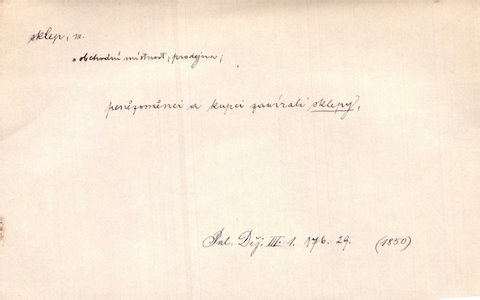 sklep, m.
» obchodní místnost, prodejna,
peněoměnci a kupci zavírali sklepy,
Pal. Děj. III. 1. 176. 29. (1850)